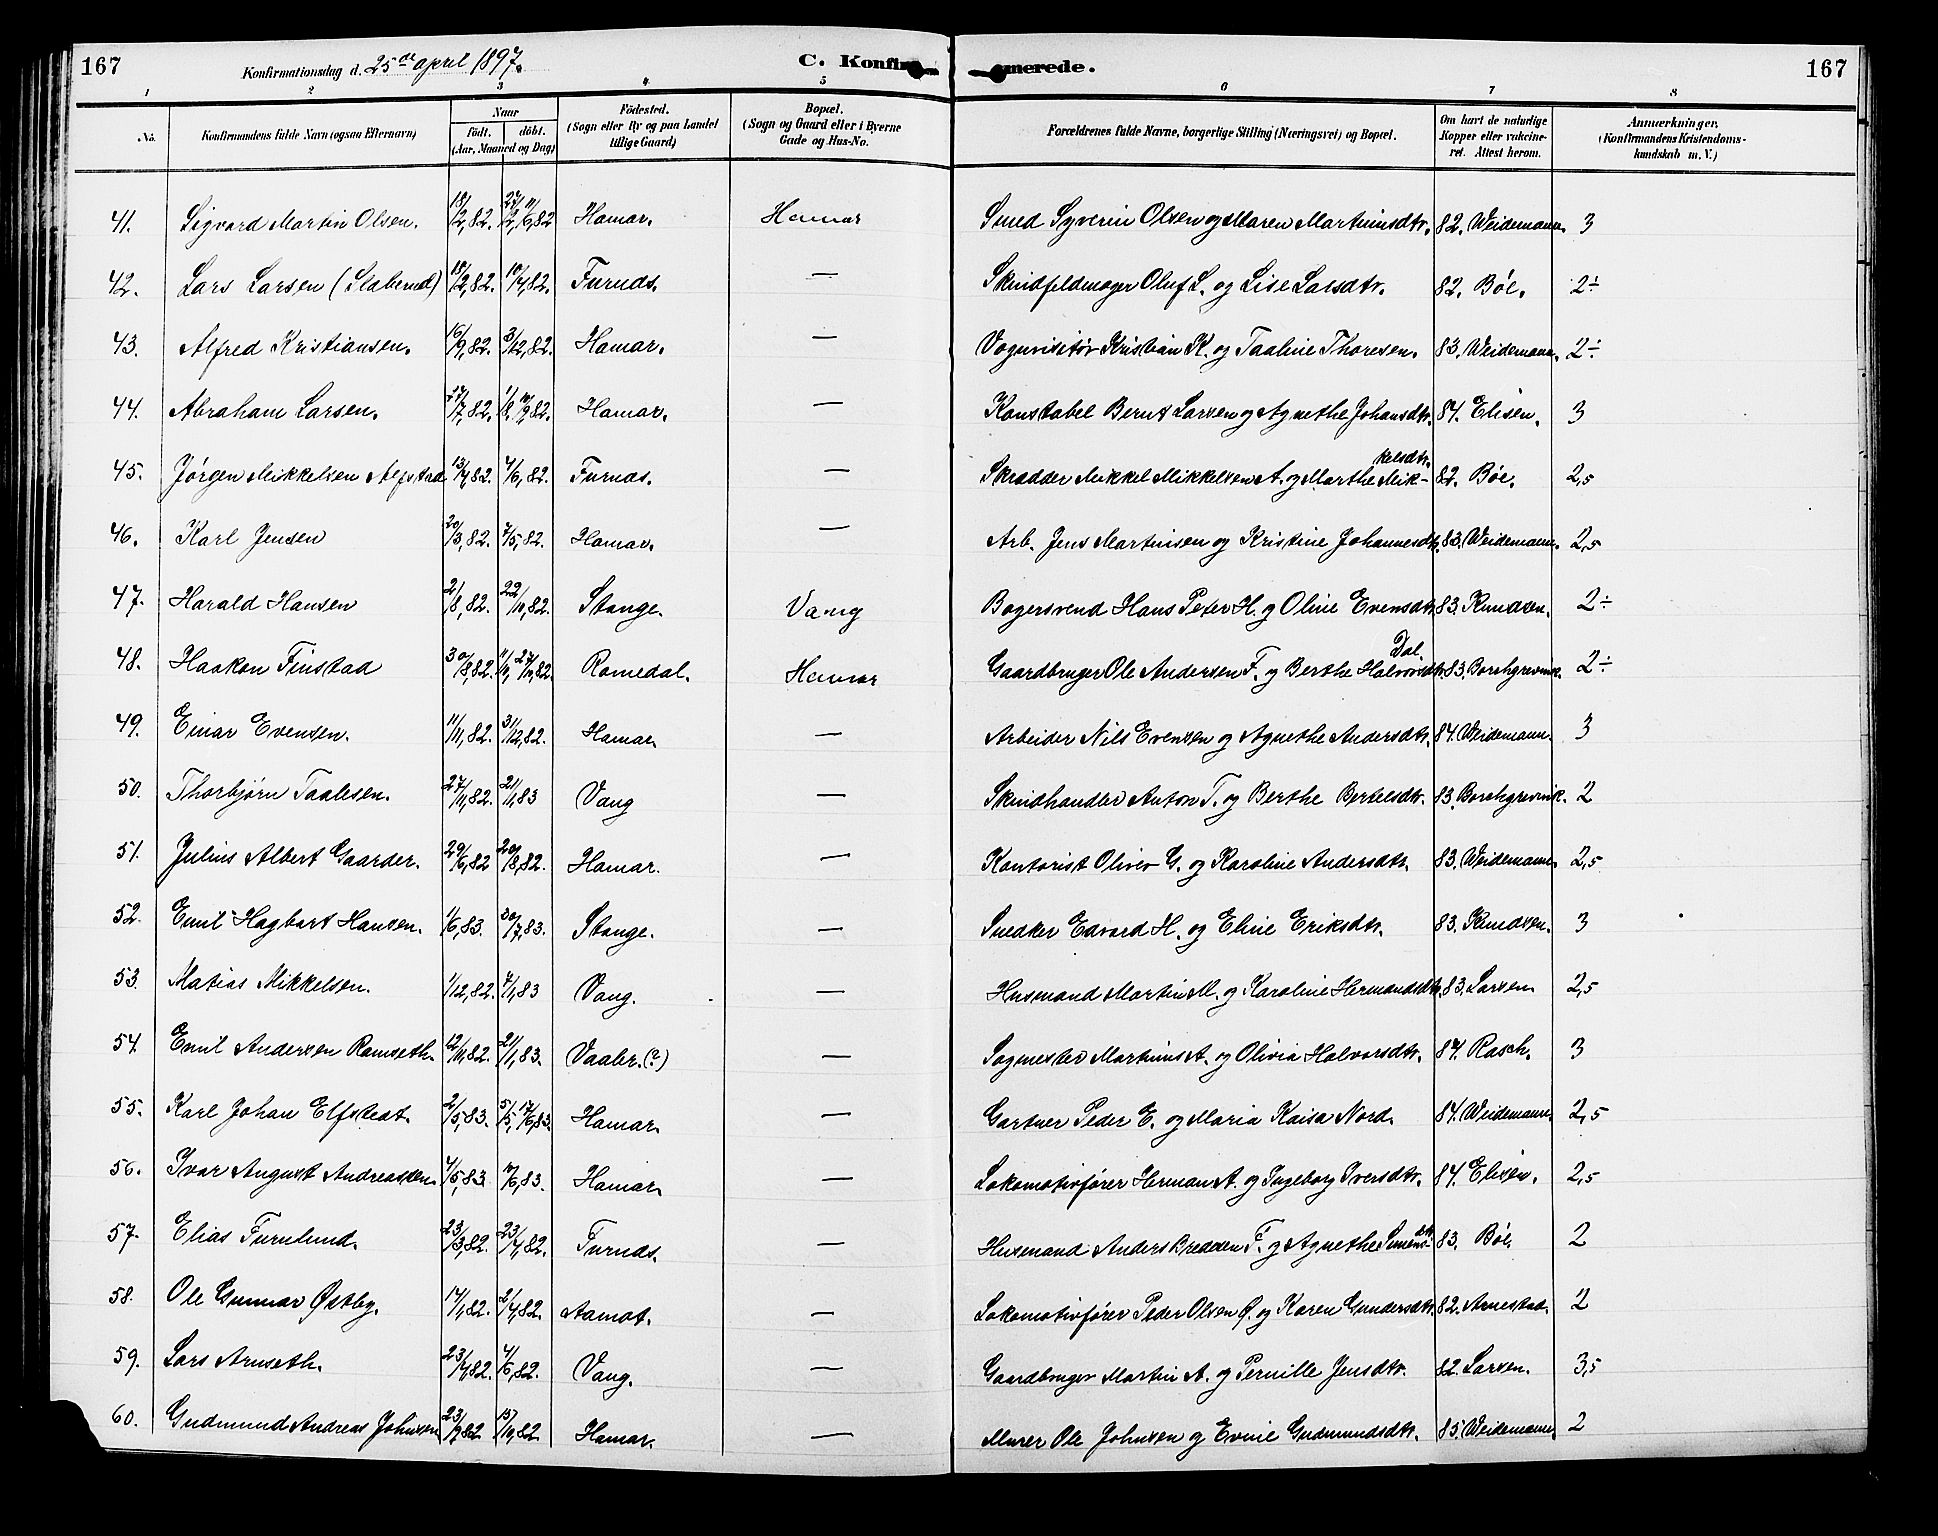 167 Konfirmationsdag d. 25de april 1897. C. Konfirmerede. 167
1 2 3 4 5 6 7 8
No. Konfirmandens fulde Navn (ogsaa Efternavn) Naar födt. döbt. (Aar, Maaned og Dag) Födested. (Sogn eller By og paa Landet tillige Gaard) Bopæl. (Sogn og Gaard eller i Byerne Gade og Hus-No. Forældrenes fulde Navne, borgerlige Stilling (Næringsvei) og Bopæl. Om havt de naturlige Kopper eller vakcineret. Attest herom. Anmærkninger, (Konfirmandens Kristendomskundskab m. V.)
41. Sigvard Martin Olsen. 18/2,82. 27/2, 11/6,82 Hamar. Hamar Smed Syverin Olsen og Maren Martinusdtr. 82. Weidemann. 3
42. Lars Larsen (Staberud) 18/2,82. 10/4,82. Furnds. — Skindfeldmager Oluf L. og Lise Larsdtr. 82. Böe. 2÷
43. Alfred Kristiansen. 16/9,82. 3/12,82. Hamar. — Vognvisitör Kristian K. og Taaline Thoresen. 83. Weidemann. 2÷
44. Abraham Larsen. 27/7,82. 1/8, 10/9,82. Hamar. — Konstabel Bernt Larsen og Agnethe Johansdtr. 84. Elisen. 3
45. Jørgen Mikkelsen Alfstad 13/4,82. 4/6,82. Furnds. — Skrædder Mikkel Mikkelsen A. og Marthe Mikkelsdtr. 82. Böe. 2,5
46. Karl Jensen 20/3,82. 7/5,82. Hamar. — Arb. Jens Martinsen og Kristine Johannesdtr. 83. Weidemann. 2,5
47. Harald Hansen 2/8,82. 22/10,82. Stange. Vang Bagersvend Hans Peter H. og Oline Evensdtr. 83. Knudsen. 2÷
48. Haakon Finstad 30/8,82. Romedal. Hamar Gaardbruger Ole Andersen F. og Berthe Halvorsdtr. Dal. 83. Borchgrevink. 2÷
49. Einar Evensen. 11/11,82. 31/12,82. Hamar. — Arbeider Nils Evensen og Agnethe Andersdtr. 84. Weidemann. 3
50. Thorbjørn Taalesen. 27/11,82. 21/1,83 Vang — Skindhandler Anton T. og Berthe Bertelsdtr. 83. Borchgrevink. 2
51. Julius Albert Gaarder. 29/6,82 20/8,82. Hamar. — Kontorist Oliver G. og Karoline Andersdtr. 83. Weidemann. 2,5
52. Emil Hagbart Hansen. 1/6,83. 30/7,83. Stange. — Snedker Edvard H. og Eline Eriksdtr. 83. Knudsen. 3
53. Matias Mikkelsen. 1/12,82. 7/1,83 Vang. — Husmand Martin M. og Karoline Hermandsdtr. 83. Larsen. 2,5
54. Emil Andersen Ramseth. 12/11,82. 21/1,83. Vaaler. (?) — Sagmester Martinus A. og Olivia Halvorsdtr. 84. Rasch. 3
55. Karl Johan Elfstrat. 2/5,83. 5/5, 17/6,83. Hamar. — Gartner Peder E. og Maria Kaisa Nord. 84. Weidemann. 2,5
56. Ivar August Andreassen. 4/5,83. Hamar. — Lokomotivfører Herman A. og Ingeborg Iversdtr. 84. Elisen. 2,5
57. Elias Furulund. 23/3,82. 23/4,82. Furnds. — Husmand Anders Bredesen F. og Agnethe Simensdtr. 83. Böe. 2
58. Ole Gunnar Østby. 14/1,82. 2/4,82. Aamot. — Lokomotivfører Peder Olsen Ø. og Karen Gundersdtr. 82. Arnestad. 2
59. Lars Arnseth. 23/4,82. 4/6,82. Vang. — Gaardbruger Martin A. og Pernille Jensdtr. 82. Larsen. 3,5
60. Gudmund Andreas Johnsen 23/9,82 15/10,82. Hamar. — Murer Ole Johnsen og Evine Gudmundsdtr. 85. Weidemann. 2